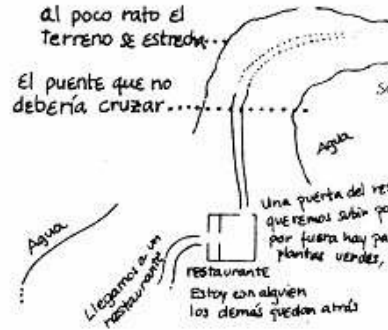 al poco rato el
terreno se estrecha
El puente que no
debería cruzar
Agua
Agua
Una puerta del
queremos subir
por fuera hay
plantas verdes,
Llegamos a un
restaurante
restaurante
Estoy con alguien
los demás quedan atrás